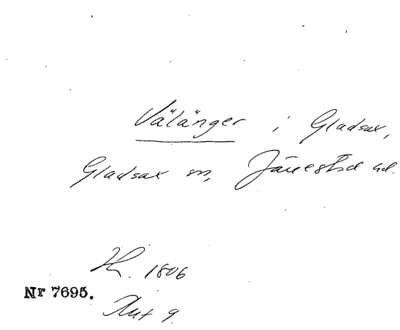 Välänger i Gladsax,
Gladsax sn, Järrestad hd.
K. 1806
Nr 7695.
Akt 9